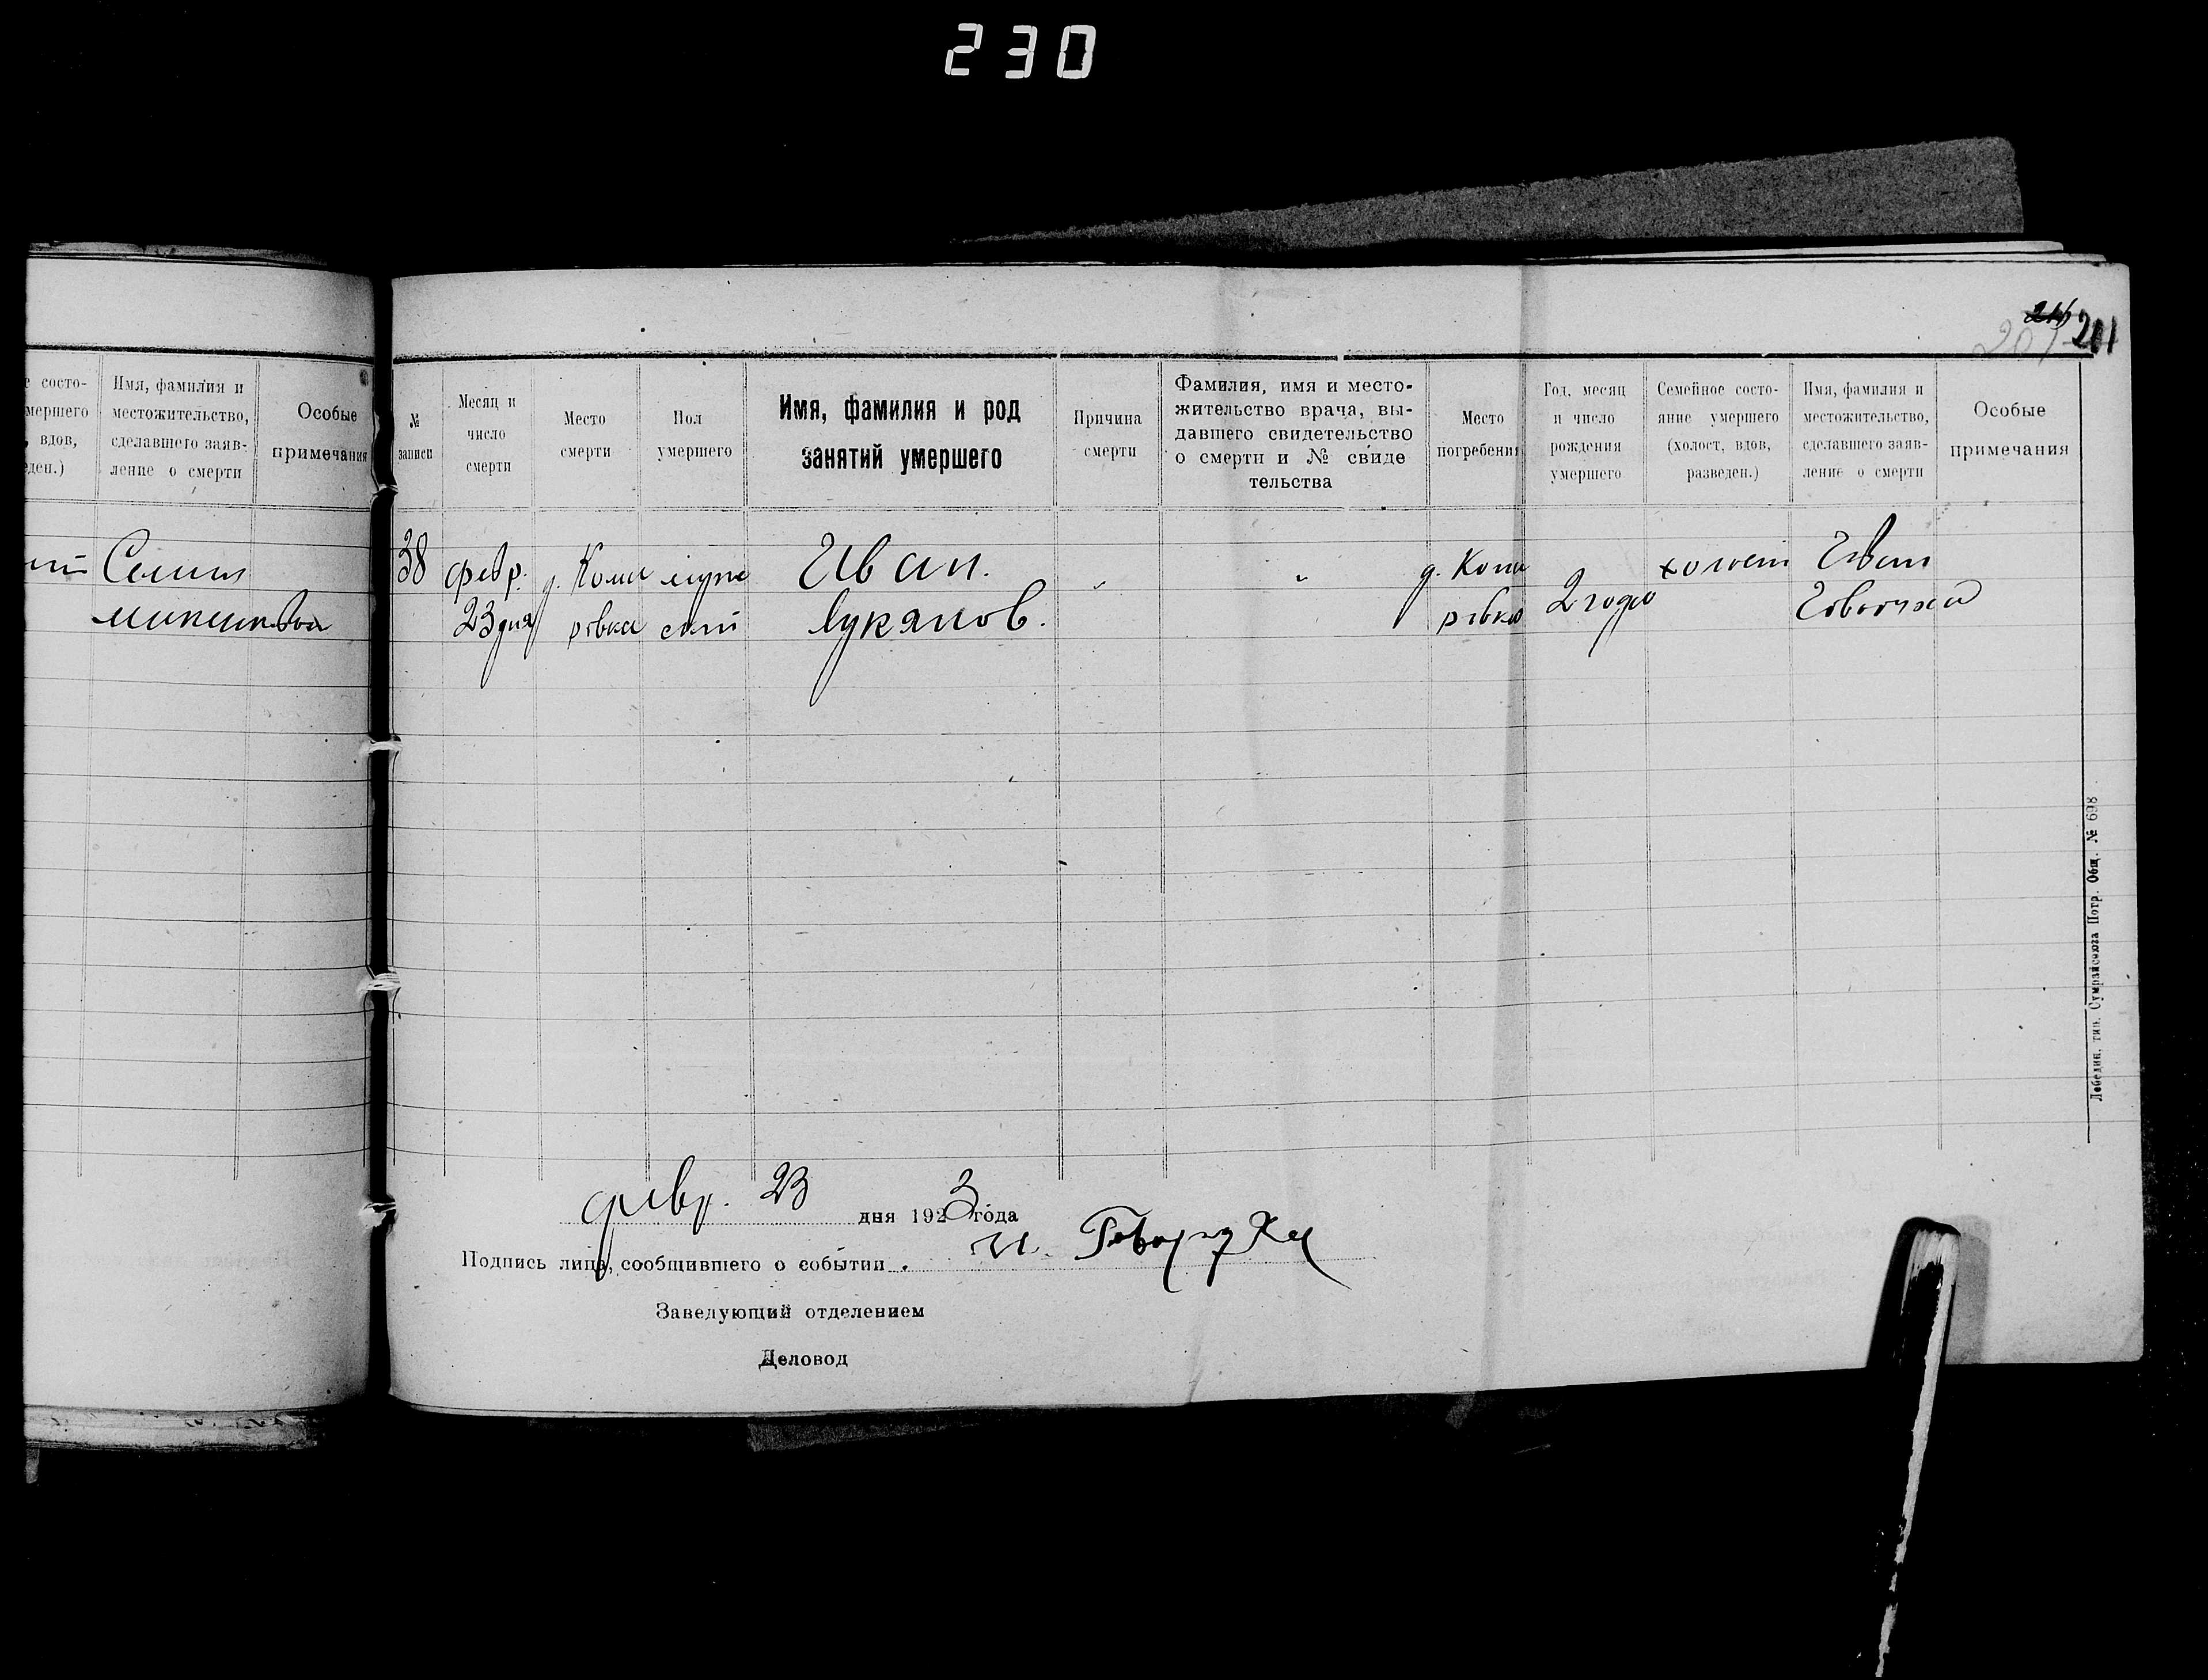 230
201
е состо-
мершего
, вдов,
еден.)
Имя, фамилия и
местожительство,
сделавшего заяв-
ление о смерти
Особые
примечания
№
записи
Месяц и
число
смерти
Место
смерти
Пол
умершего
Имя, фамилия и род
занятий умершего
Причина
смерти
Фамилия, имя и место-
жительство врача, вы-
давшего свидетельство
о смерти и № свиде
тельства
Место
погребения
Год, месяц
и число
рождения
умершего
Семейное состо-
яние умершего
(холост, вдов,
разведен.)
Имя, фамилия и
местожительство,
сделавшего заяв-
ление о смерти
Особые
примечания
38
февр.
23 дня
мужс
кий
Иван.
Луканов.
2 года
холост
Иван
февр. 23 дня 1923 года
Подпись лица, сообщившего о событии .
Заведующий отделением
Деловод
Лебедин. тип. Сумрайсоюза Потр. Общ. № 698